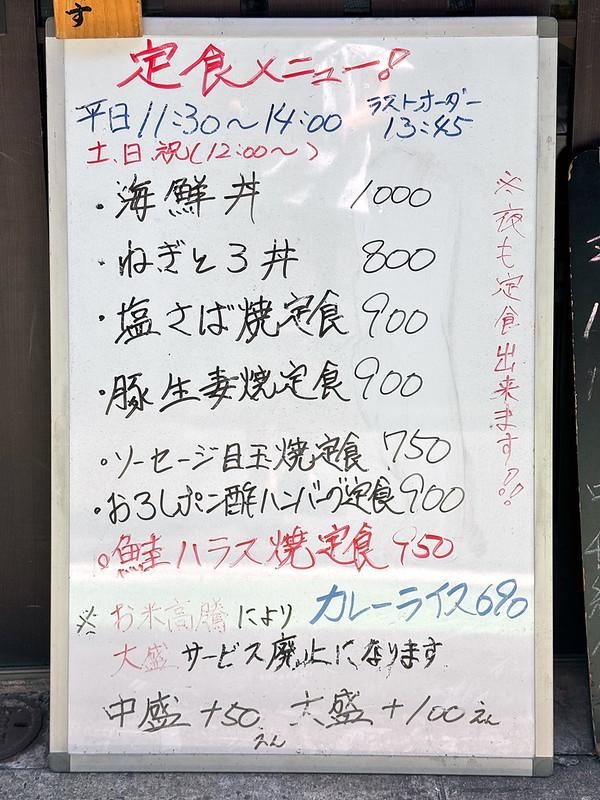 す
定食メニュー!
平日11:30〜14:00 ラストオーダー 13:45
土.日.祝(12:00〜)
・海鮮丼 1000
・ねぎとろ丼 800
・塩さば焼定食 900
・豚生妻焼定食 900
・ソーセージ目玉焼定食 750
・おろしポン酢ハンバーグ定食 900
・鮭ハラス焼定食 950
カレーライス690
※お米高騰により
大盛サービス廃止になります
中盛+50えん 大盛+100えん
※夜も定食出来ます!!